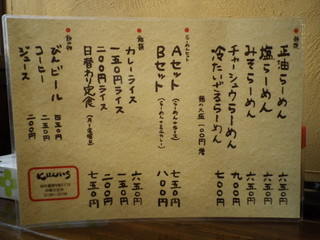 麺類
正油らーめん 六五〇
塩らーめん 六五〇
みそらーめん 六五〇
チャーシュウらーめん 九〇〇
冷たいざるらーめん 七〇〇
麺の大盛 一〇〇円増
らーめんセット
Aセット 七五〇
Bセット 八〇〇
飯類
カレーライス 六五〇
一五〇円ライス 一五〇
二〇〇円ライス 二〇〇
日替わり定食 七五〇
飲み物
びんビール
コーヒー 二五〇
ジュース 二〇〇